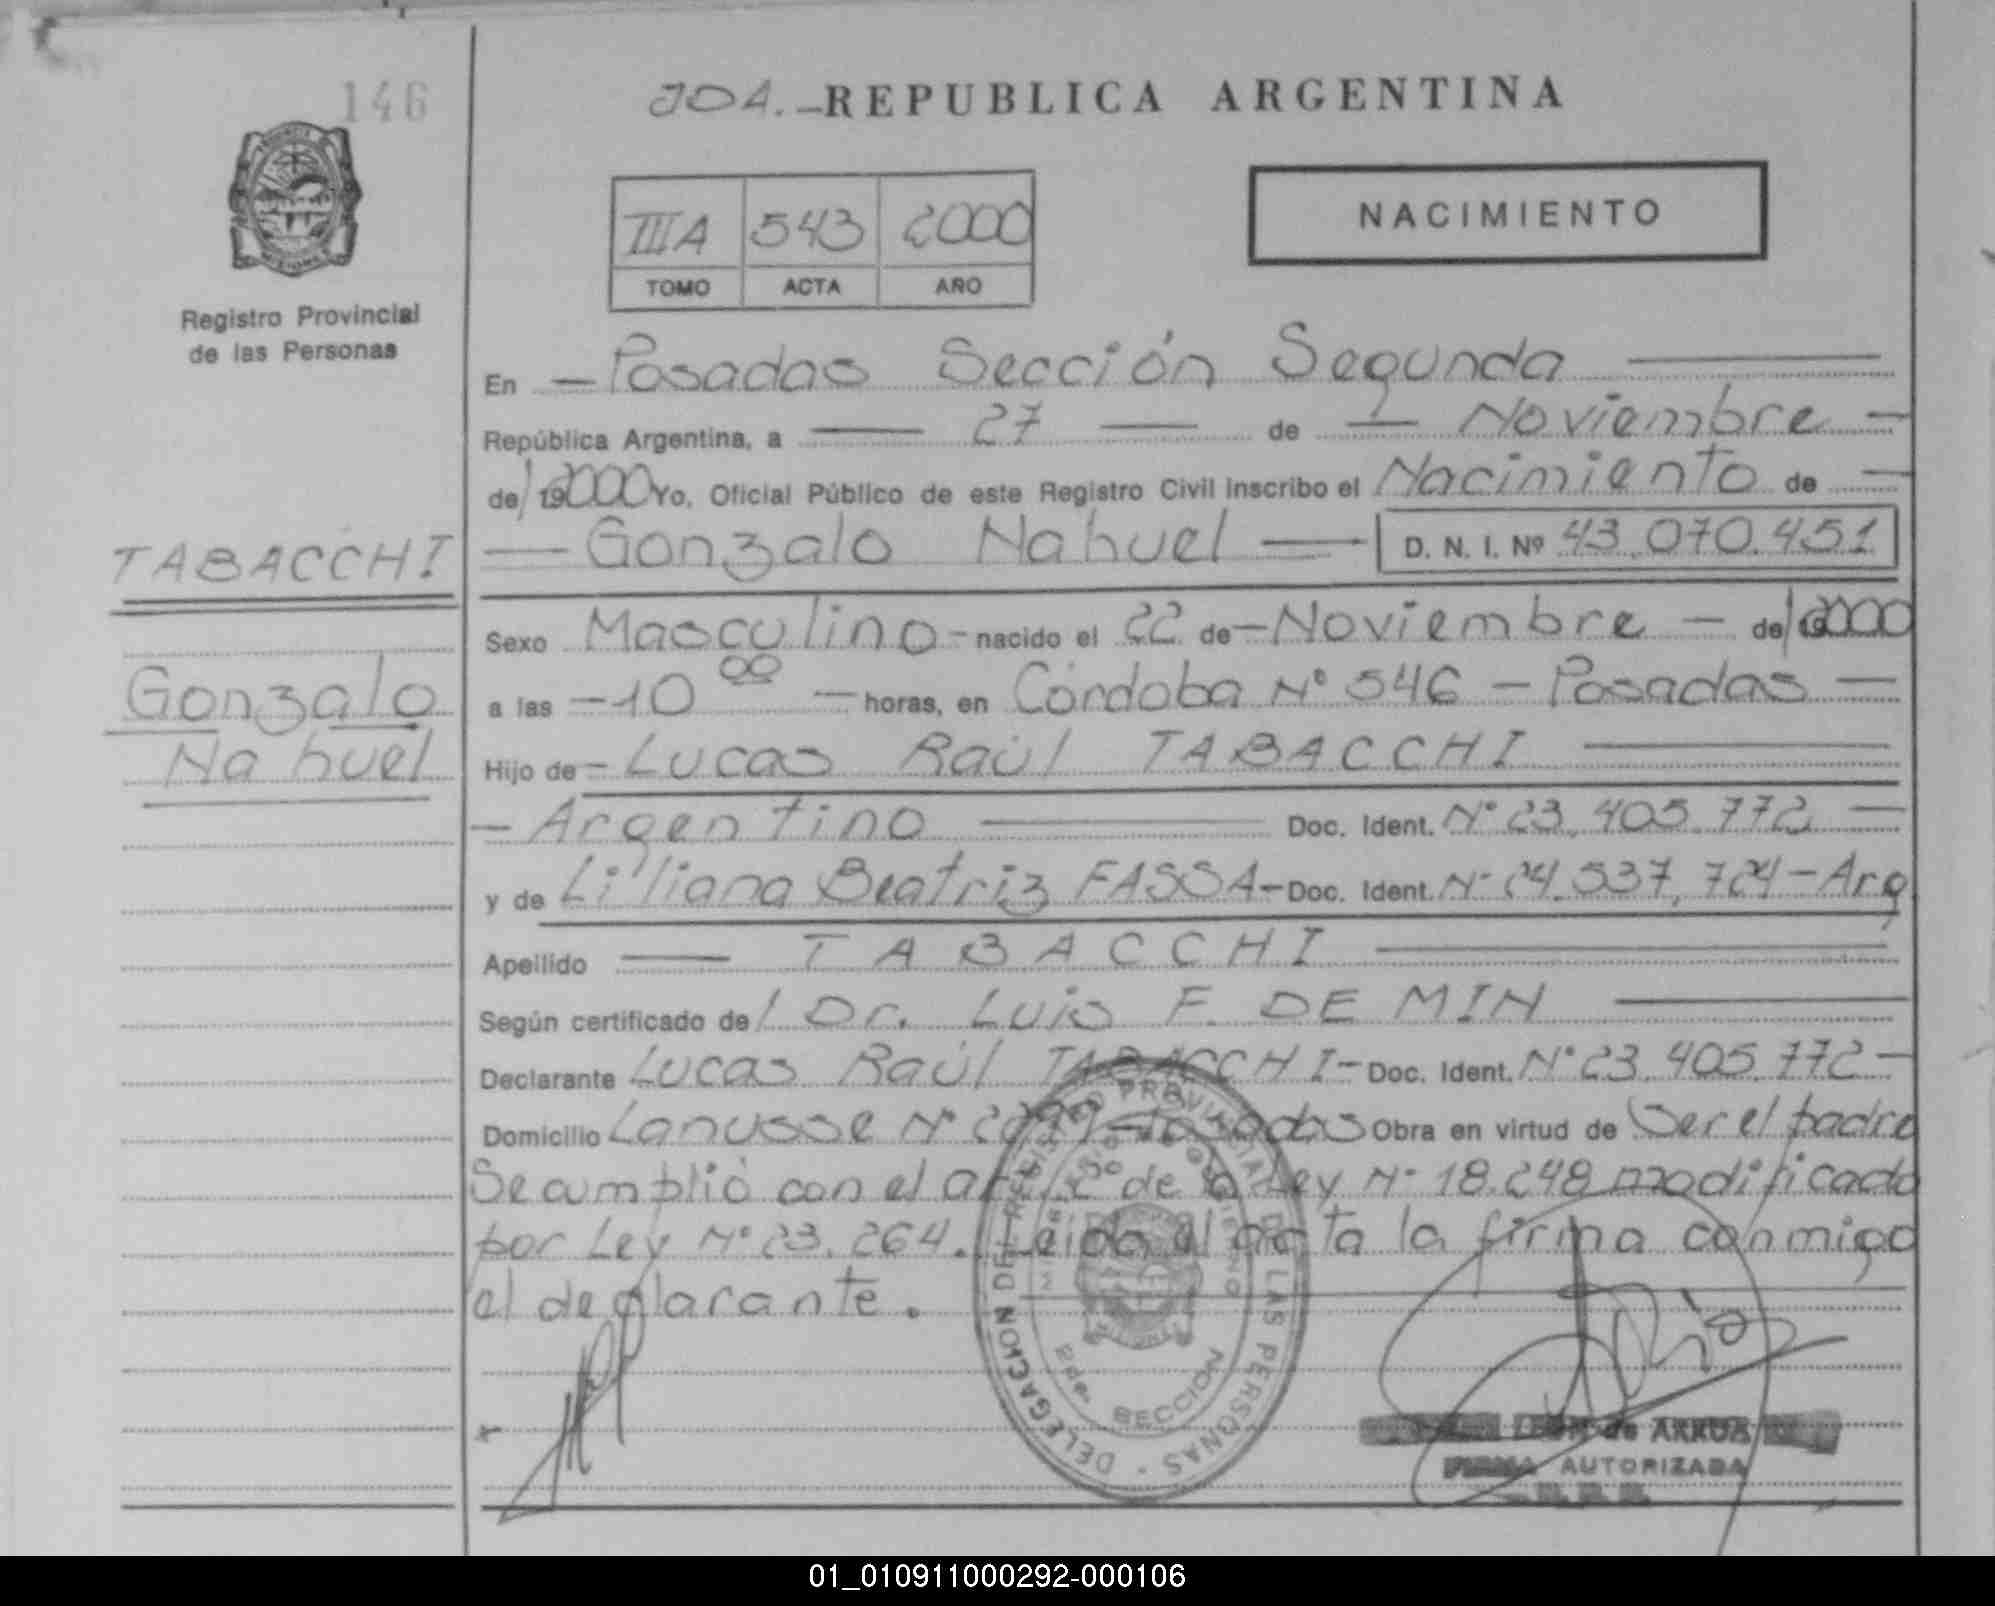 146
JOA.- REPUBLICA ARGENTINA
IIIA 543 2000
TOMO ACTA AÑO
NACIMIENTO
Registro Provincial
de las Personas
En - Posadas Sección Segunda
República Argentina, a 27 de Noviembre -
de 19 2000 Yo, Oficial Público de este Registro Civil inscribo el Nacimiento de -
TABACCHI
- Gonzalo Nahuel - D. N. I. Nº 43.070.451
Sexo Masculino - nacido el 22 de - Noviembre - de 19 2000
Gonzalo
Nahuel
a las - 10 00 - horas, en Córdoba Nº 546 - Posadas -
Hijo de - Lucas Raúl TABACCHI
- Argentino Doc. Ident. Nº 23.405.772 -
y de Liliana Beatriz FASSA - Doc. Ident. Nº 24.537.724 - Arg
Apellido TABACCHI
Según certificado de / Dr. Luis F. DE MIN
Declarante Lucas Raúl TABACCHI - Doc. Ident. Nº 23.405.772 -
Domicilio Lanusse Nº - Posadas Obra en virtud de Ser el padre
Se cumplió con el art. 2º de la Ley Nº 18.248 modificado
por Ley Nº 23.264. Leida el acta la firma conmigo
el declarante.
DELEGACION DEL REGISTRO PROVINCIAL DE LAS PERSONAS
MINISTERIO DE GOBIERNO
2da. SECCION
de ARRUA
FIRMA AUTORIZADA
01_010911000292-000106